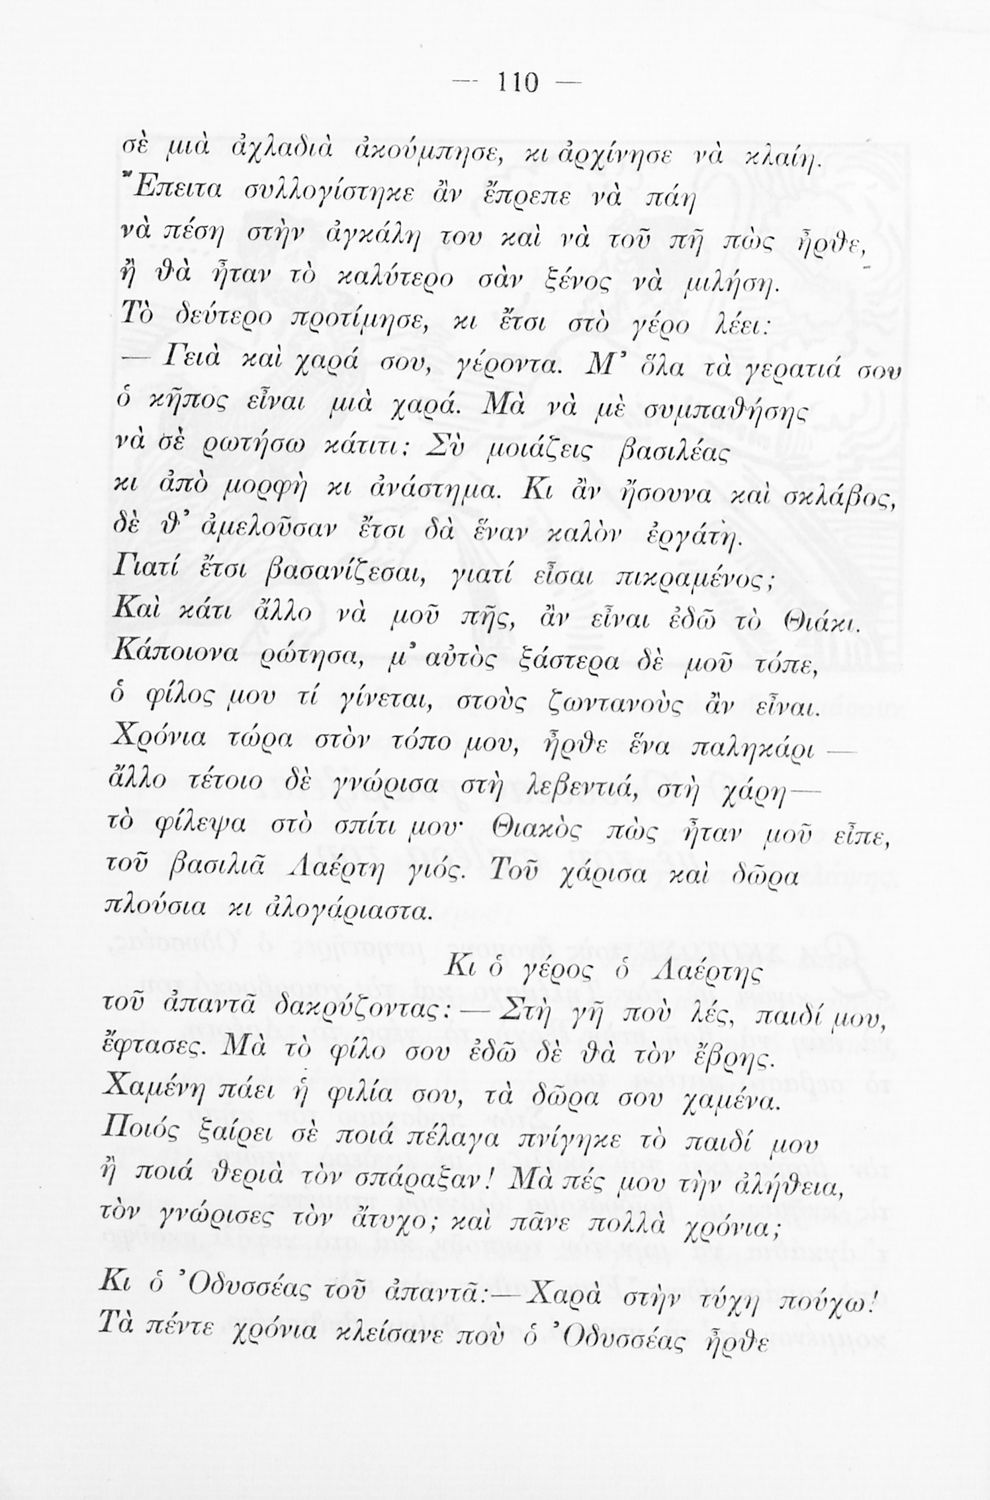 — 110 —
σὲ μιὰ ἀχλαδιὰ ἀκούμπησε, κι ἀρχίνησε νὰ κλαίη.
Ἔπειτα συλλογίστηκε ἂν ἔπρεπε νὰ πάη
νὰ πέση στὴν ἀγκάλη του καὶ νὰ τοῦ πῆ πὼς ἦρθε,
ἢ θὰ ἦταν τὸ καλύτερο σὰν ξένος νὰ μιλήση.
Τὸ δεύτερο προτίμησε, κι ἔτσι στὸ γέρο λέει:
— Γειὰ καὶ χαρά σου, γέροντα. Μ' ὅλα τὰ γερατιά σου
ὁ κῆπος εἶναι μιὰ χαρά. Μὰ νὰ μὲ συμπαθήσης
νὰ σὲ ρωτήσω κάτιτι: Σὺ μοιάζεις βασιλέας
κι ἀπὸ μορφὴ κι ἀνάστημα. Κι ἂν ἤσουνα καὶ σκλάβος,
δὲ θ' ἀμελοῦσαν ἔτσι δὰ ἕναν καλὸν ἐργάτη.
Γιατί ἔτσι βασανίζεσαι, γιατί εἶσαι πικραμένος;
Καὶ κάτι ἄλλο νὰ μοῦ πῆς, ἂν εἶναι ἐδῶ τὸ Θιάκι.
Κάποιονα ρώτησα, μ' αὐτὸς ξάστερα δὲ μοῦ τόπε,
ὁ φίλος μου τί γίνεται, στοὺς ζωντανοὺς ἂν εἶναι.
Χρόνια τώρα στὸν τόπο μου, ἦρθε ἕνα παληκάρι —
ἄλλο τέτοιο δὲ γνώρισα στὴ λεβεντιά, στὴ χάρη—
τὸ φίλεψα στὸ σπίτι μου· Θιακὸς πὼς ἦταν μοῦ εἶπε,
τοῦ βασιλιᾶ Λαέρτη γιός. Τοῦ χάρισα καὶ δῶρα
πλούσια κι ἀλογάριαστα.
Κι ὁ γέρος ὁ Λαέρτης
τοῦ ἀπαντᾶ δακρύζοντας: — Στὴ γῆ ποὺ λές, παιδί μου,
ἔφτασες. Μὰ τὸ φίλο σου ἐδῶ δὲ θὰ τὸν ἔβρης.
Χαμένη πάει ἡ φιλία σου, τὰ δῶρα σου χαμένα.
Ποιός ξαίρει σὲ ποιά πέλαγα πνίγηκε τὸ παιδί μου
ἢ ποιά θεριὰ τὸν σπάραξαν! Μὰ πές μου τὴν ἀλήθεια,
τὸν γνώρισες τὸν ἄτυχο; καὶ πᾶνε πολλὰ χρόνια;
Κι ὁ Ὀδυσσέας τοῦ ἀπαντᾶ:—Χαρὰ στὴν τύχη πούχω!
Τὰ πέντε χρόνια κλείσανε ποὺ ὁ Ὀδυσσέας ἦρθε